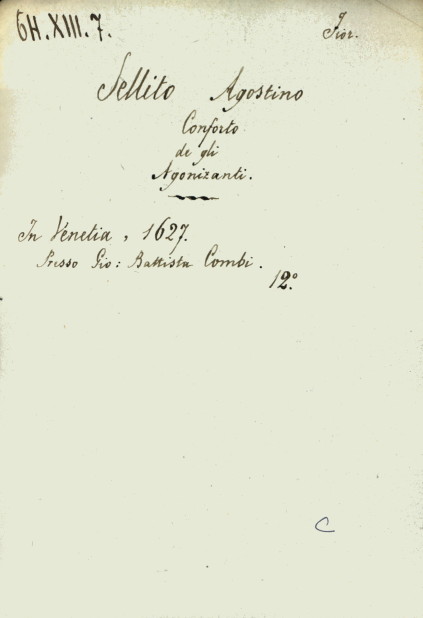 6H.XIII.7.
Fior.
Sellito Agostino
Conforto
de gli
Agonizanti.
In Venetia, 1627.
Presso Gio: Battista Combi.
12º
C